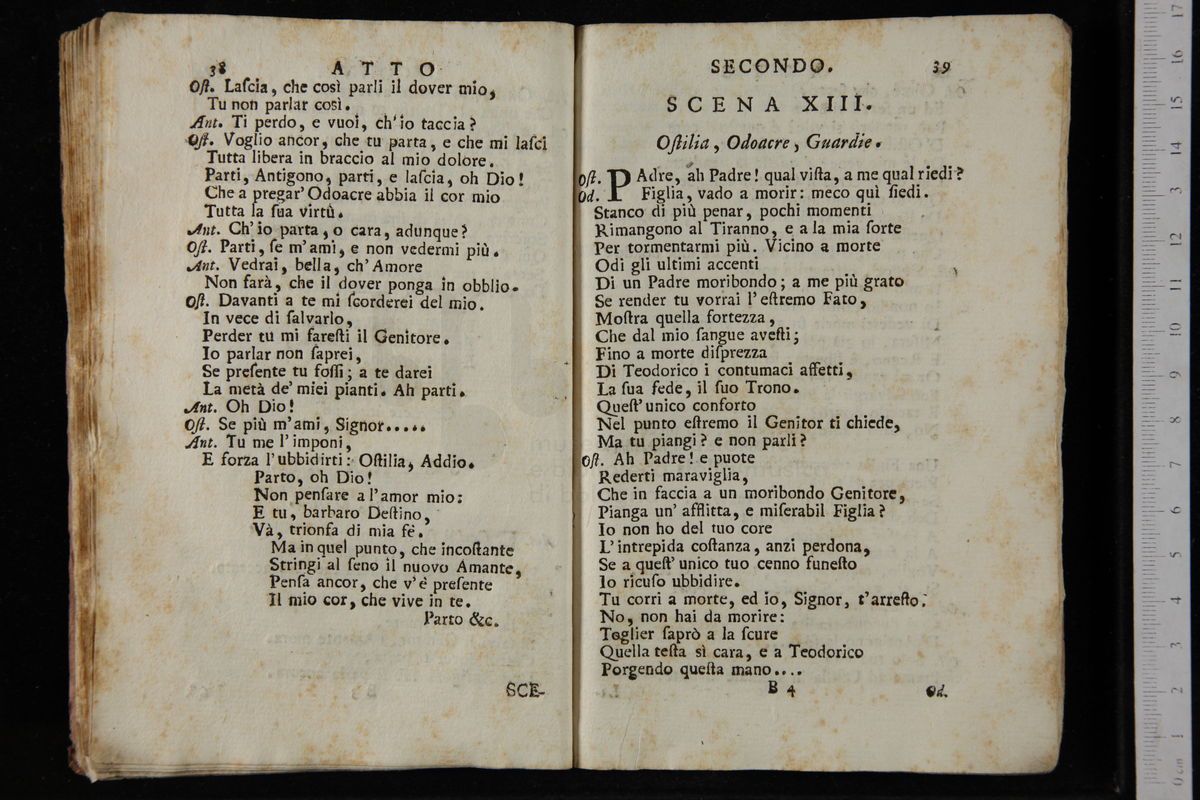 38 ATTO
Oſt. Laſcia, che così parli il dover mio,
Tu non parlar così.
Ant. Ti perdo, e vuoi, ch'io taccia?
Oſt. Voglio ancor, che tu parta, e che mi laſci
Tutta libera in braccio al mio dolore.
Parti, Antigono, parti, e laſcia, oh Dio!
Che a pregar' Odoacre abbia il cor mio
Tutta la ſua virtù.
Ant. Ch'io parta, o cara, adunque?
Oſt. Parti, ſe m'ami, e non vedermi più.
Ant. Vedrai, bella, ch'Amore
Non farà, che il dover ponga in obblio.
Oſt. Davanti a te mi ſcorderei del mio.
In vece di ſalvarlo,
Perder tu mi fareſti il Genitore.
Io parlar non ſaprei,
Se preſente tu foſſi; a te darei
La metà de' miei pianti. Ah parti.
Ant. Oh Dio!
Oſt. Se più m'ami, Signor.....
Ant. Tu me l'imponi,
E forza l'ubbidirti: Oſtilia, Addio.
Parto, oh Dio!
Non penſare a l'amor mio:
E tu, barbaro Deſtino,
Và, trionfa di mia fè.
Ma in quel punto, che incoſtante
Stringi al ſeno il nuovo Amante,
Penſa ancor, che v'è preſente
Il mio cor, che vive in te.
Parto &c.
SCE-
SECONDO. 39
SCENA XIII.
Oſtilia, Odoacre, Guardie.
Oſt. PAdre, ah Padre! qual viſta, a me qual riedi?
Od. Figlia, vado a morir: meco quì ſiedi.
Stanco di più penar, pochi momenti
Rimangono al Tiranno, e a la mia ſorte
Per tormentarmi più. Vicino a morte
Odi gli ultimi accenti
Di un Padre moribondo; a me più grato
Se render tu vorrai l'eſtremo Fato,
Moſtra quella fortezza,
Che dal mio ſangue aveſti;
Fino a morte diſprezza
Di Teodorico i contumaci affetti,
La ſua fede, il ſuo Trono.
Queſt'unico conforto
Nel punto eſtremo il Genitor ti chiede,
Ma tu piangi? e non parli?
Oſt. Ah Padre! e puote
Rederti maraviglia,
Che in faccia a un moribondo Genitore,
Pianga un' afflitta, e miſerabil Figlia?
Io non ho del tuo core
L'intrepida coſtanza, anzi perdona,
Se a queſt'unico tuo cenno funeſto
Io ricuſo ubbidire.
Tu corri a morte, ed io, Signor, t'arreſto.
No, non hai da morire:
Toglier ſaprò a la ſcure
Quella teſta sì cara, e a Teodorico
Porgendo queſta mano....
B 4 Od.
0 cm 1 2 3 4 5 6 7 8 9 10 11 12 13 14 15 16 17